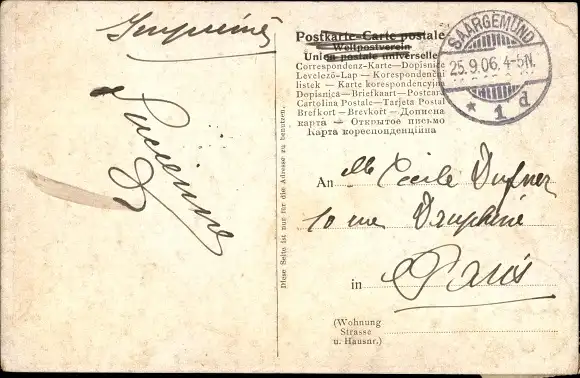 Imprimés
Lucienne
Postkarte-Carte postale
Weltpostverein
Union postale universelle
Correspondenz-Karte—Dopisnice
Levelező-Lap — Korespondenční
listek — Karte korespondencyjna
Dopisnica—Briefkaart—Postcard
Cartolina Postale—Tarjeta Postal
Brefkort — Brevkort — Дописна
карта — Открытое письмо
Карта кореспонденційна
SAARGEMÜND
25.9.06. 4-5N.
* 1 d
Diese Seite ist nur für die Adresse zu benutzen.
An Mlle Cécile Dufner
10 rue Dauphine
in Paris
(Wohnung
Strasse
u. Hausnr.)